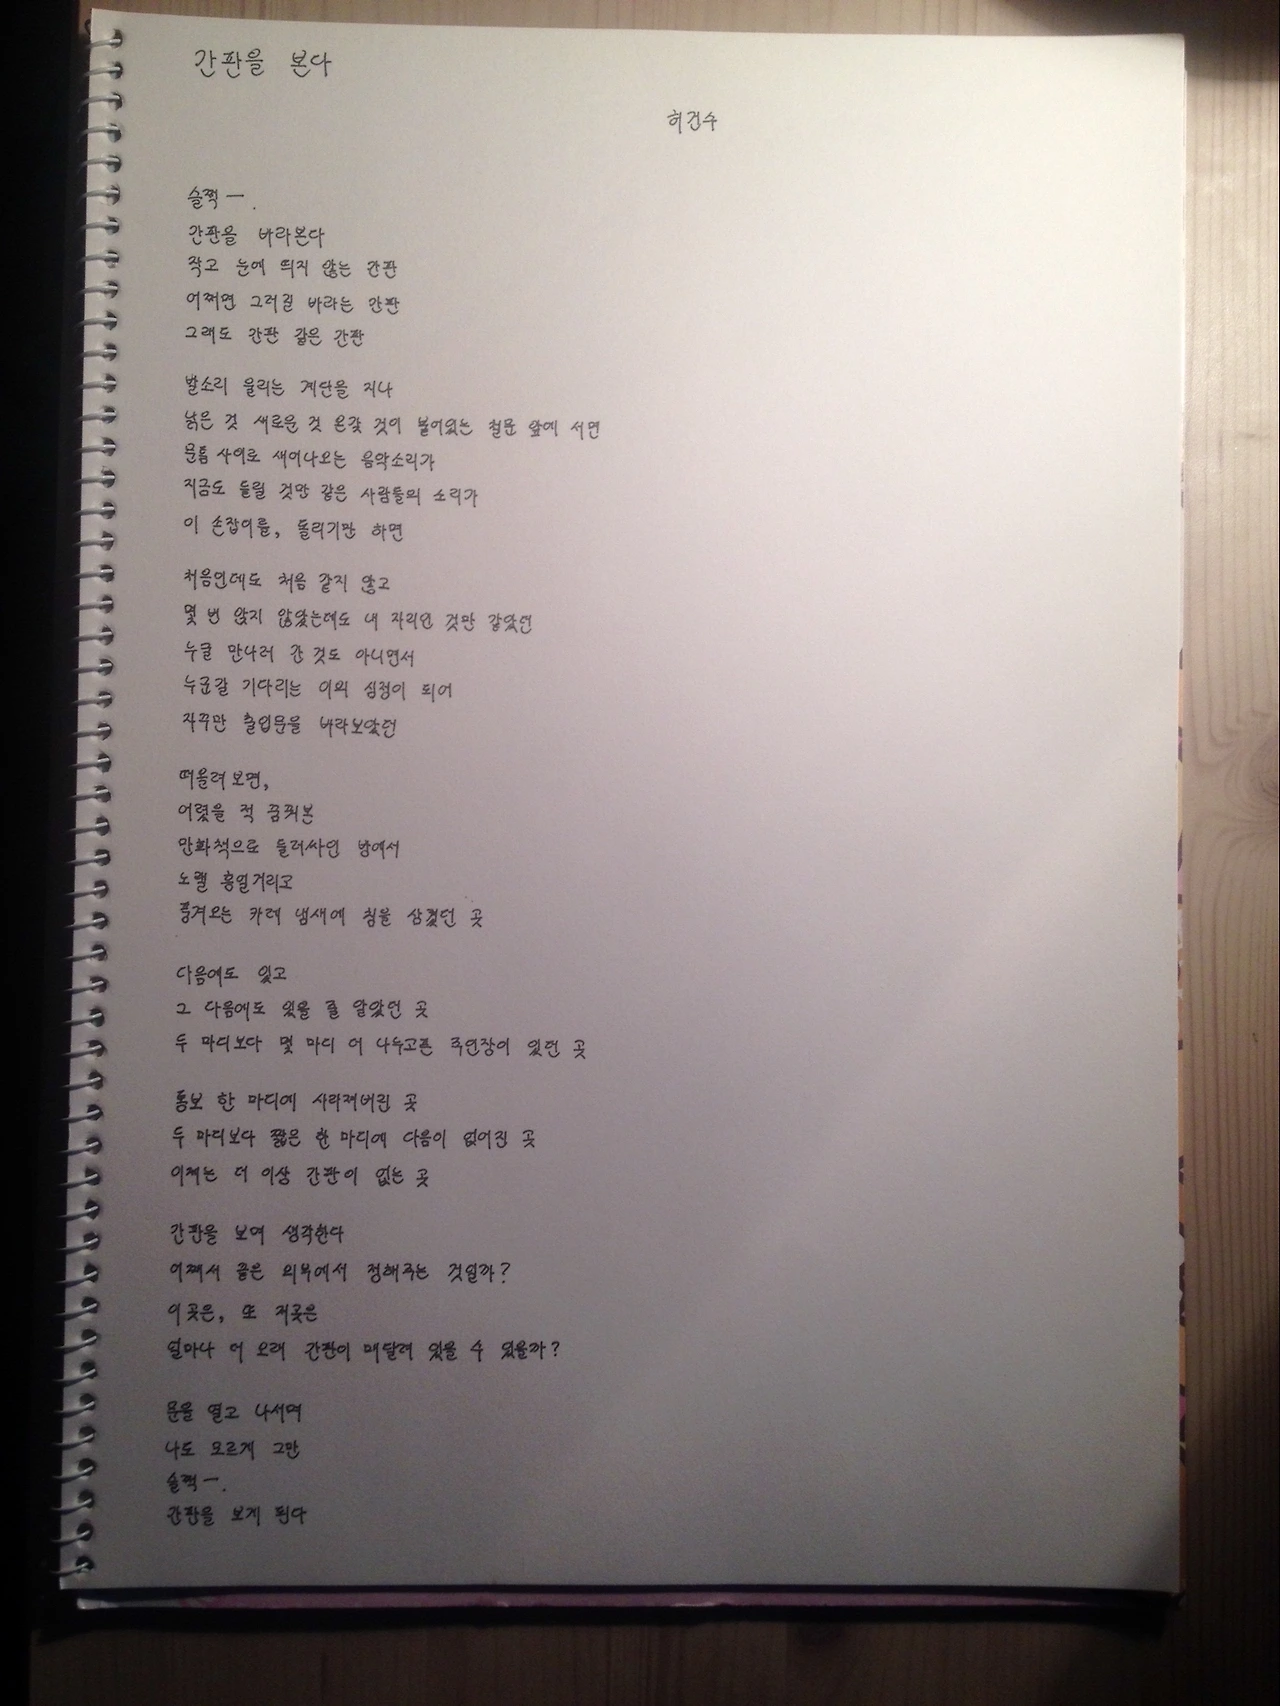 간판을 본다
허건수
슬쩍ㅡ.
간판을 바라본다
작고 눈에 띄지 않는 간판
어쩌면 그러길 바라는 간판
그래도 간판 같은 간판
발소리 울리는 계단을 지나
낡은 것 새로운 것 온갖 것이 붙어있는 철문 앞에 서면
문틈 사이로 새어나오는 음악소리가
지금도 들릴 것만 같은 사람들의 소리가
이 손잡이를, 돌리기만 하면
처음인데도 처음 같지 않고
몇 번 앉지 않았는데도 내 자리인 것만 같았던
누굴 만나러 간 것도 아니면서
누군갈 기다리는 이의 심정이 되어
자꾸만 출입문을 바라보았던
떠올려보면,
어렸을 적 꿈꿔본
만화책으로 둘러싸인 방에서
노랠 흥얼거리고
풍겨오는 카레 냄새에 침을 삼켰던 곳
다음에도 있고
그 다음에도 있을 줄 알았던 곳
두 마디보다 몇 마디 더 나누고픈 주인장이 있던 곳
통보 한 마디에 사라져버린 곳
두 마디보다 짧은 한 마디에 다음이 없어진 곳
이제는 더 이상 간판이 없는 곳
간판을 보며 생각한다
어째서 끝은 외부에서 정해주는 것일까?
이곳은, 또 저곳은
얼마나 더 오래 간판이 매달려 있을 수 있을까?
문을 열고 나서며
나도 모르게 그만
슬쩍ㅡ.
간판을 보게 된다